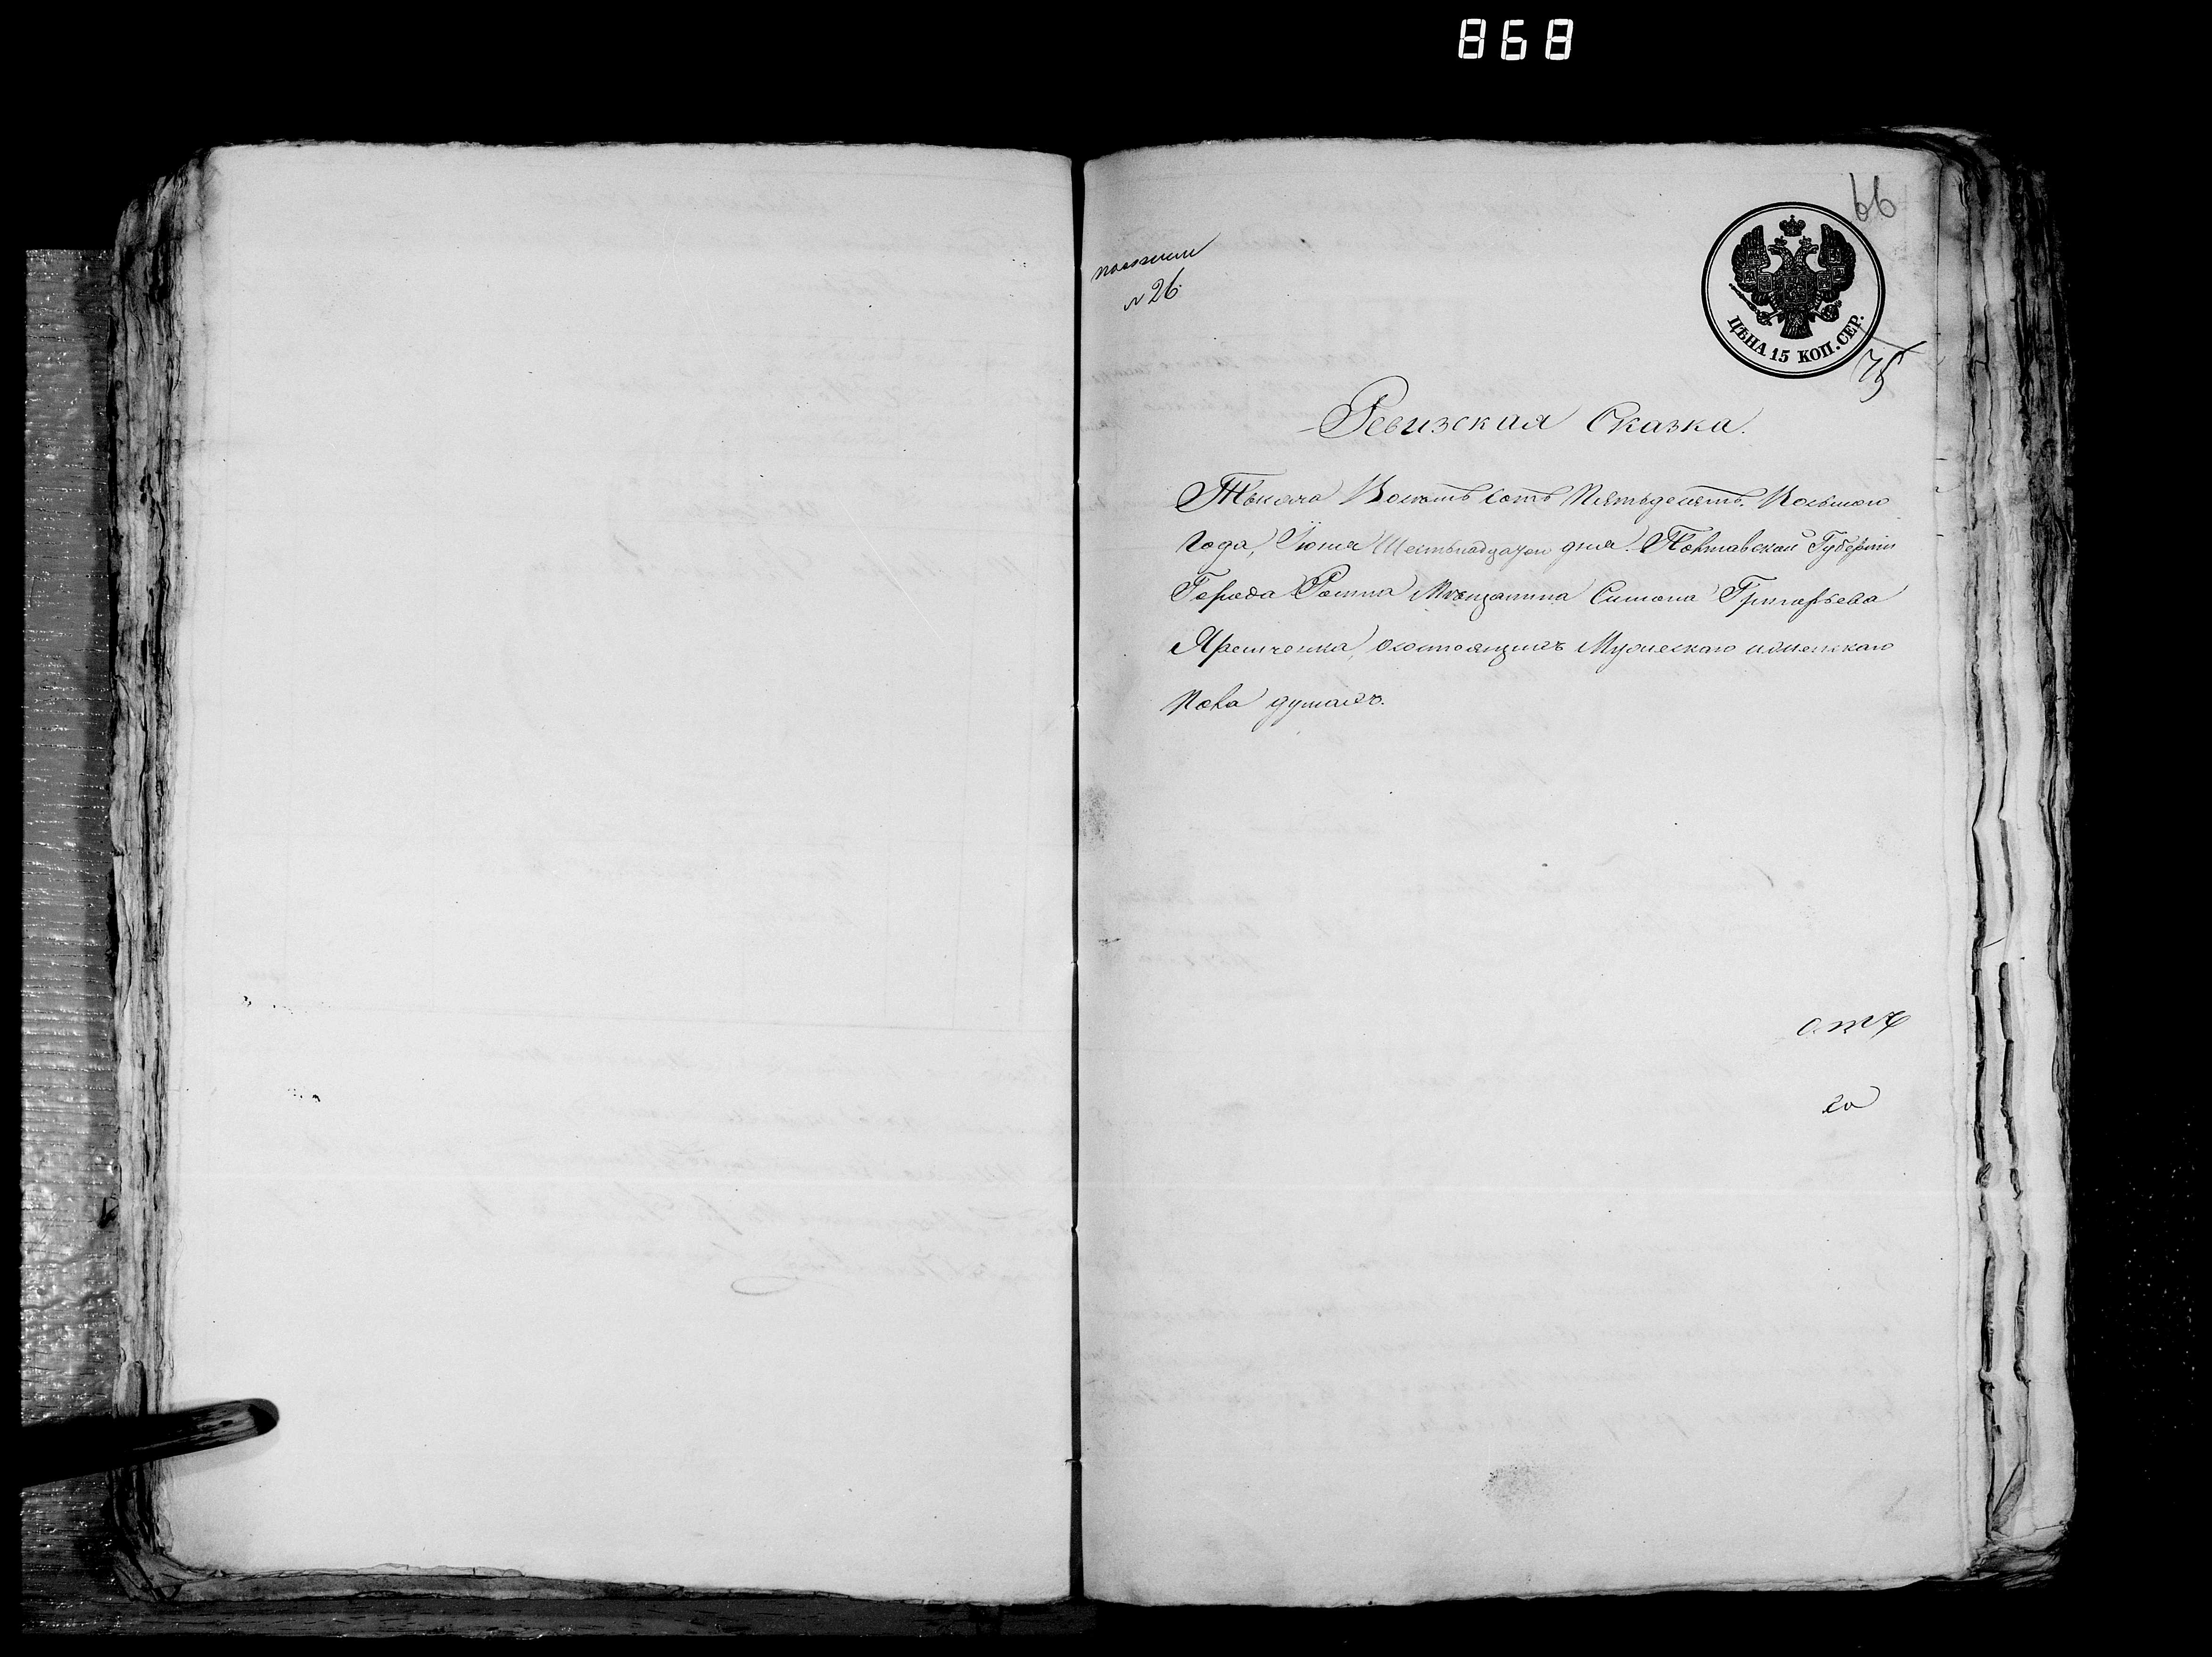 868
66
№ 26
ЦѢНА 15 КОП. СЕР.
75
Ревизская Сказка.
Тысяча Восемь сотъ Пятьдесятъ Восьмого
Года, Іюня Шестьнадцатого дня. Полтавской Губерніи
Города Ромна Мѣщанина Симона Григорьева
Яременка, осостоящихъ Мужескаго иженскаго
Пола душахъ.